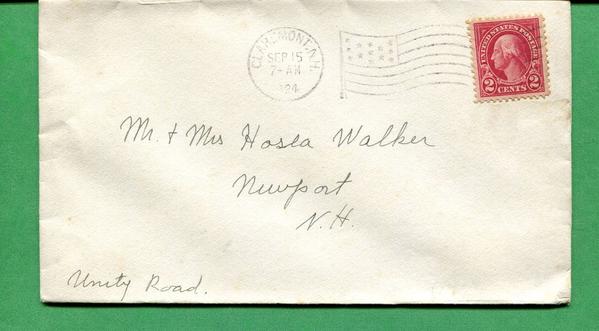 CLAREMONT, N.H.
SEP 15
7-AM
1924
UNITED STATES POSTAGE
2 CENTS 2
Mr. + Mrs Hosea Walker
Newport
N.H.
Unity Road.